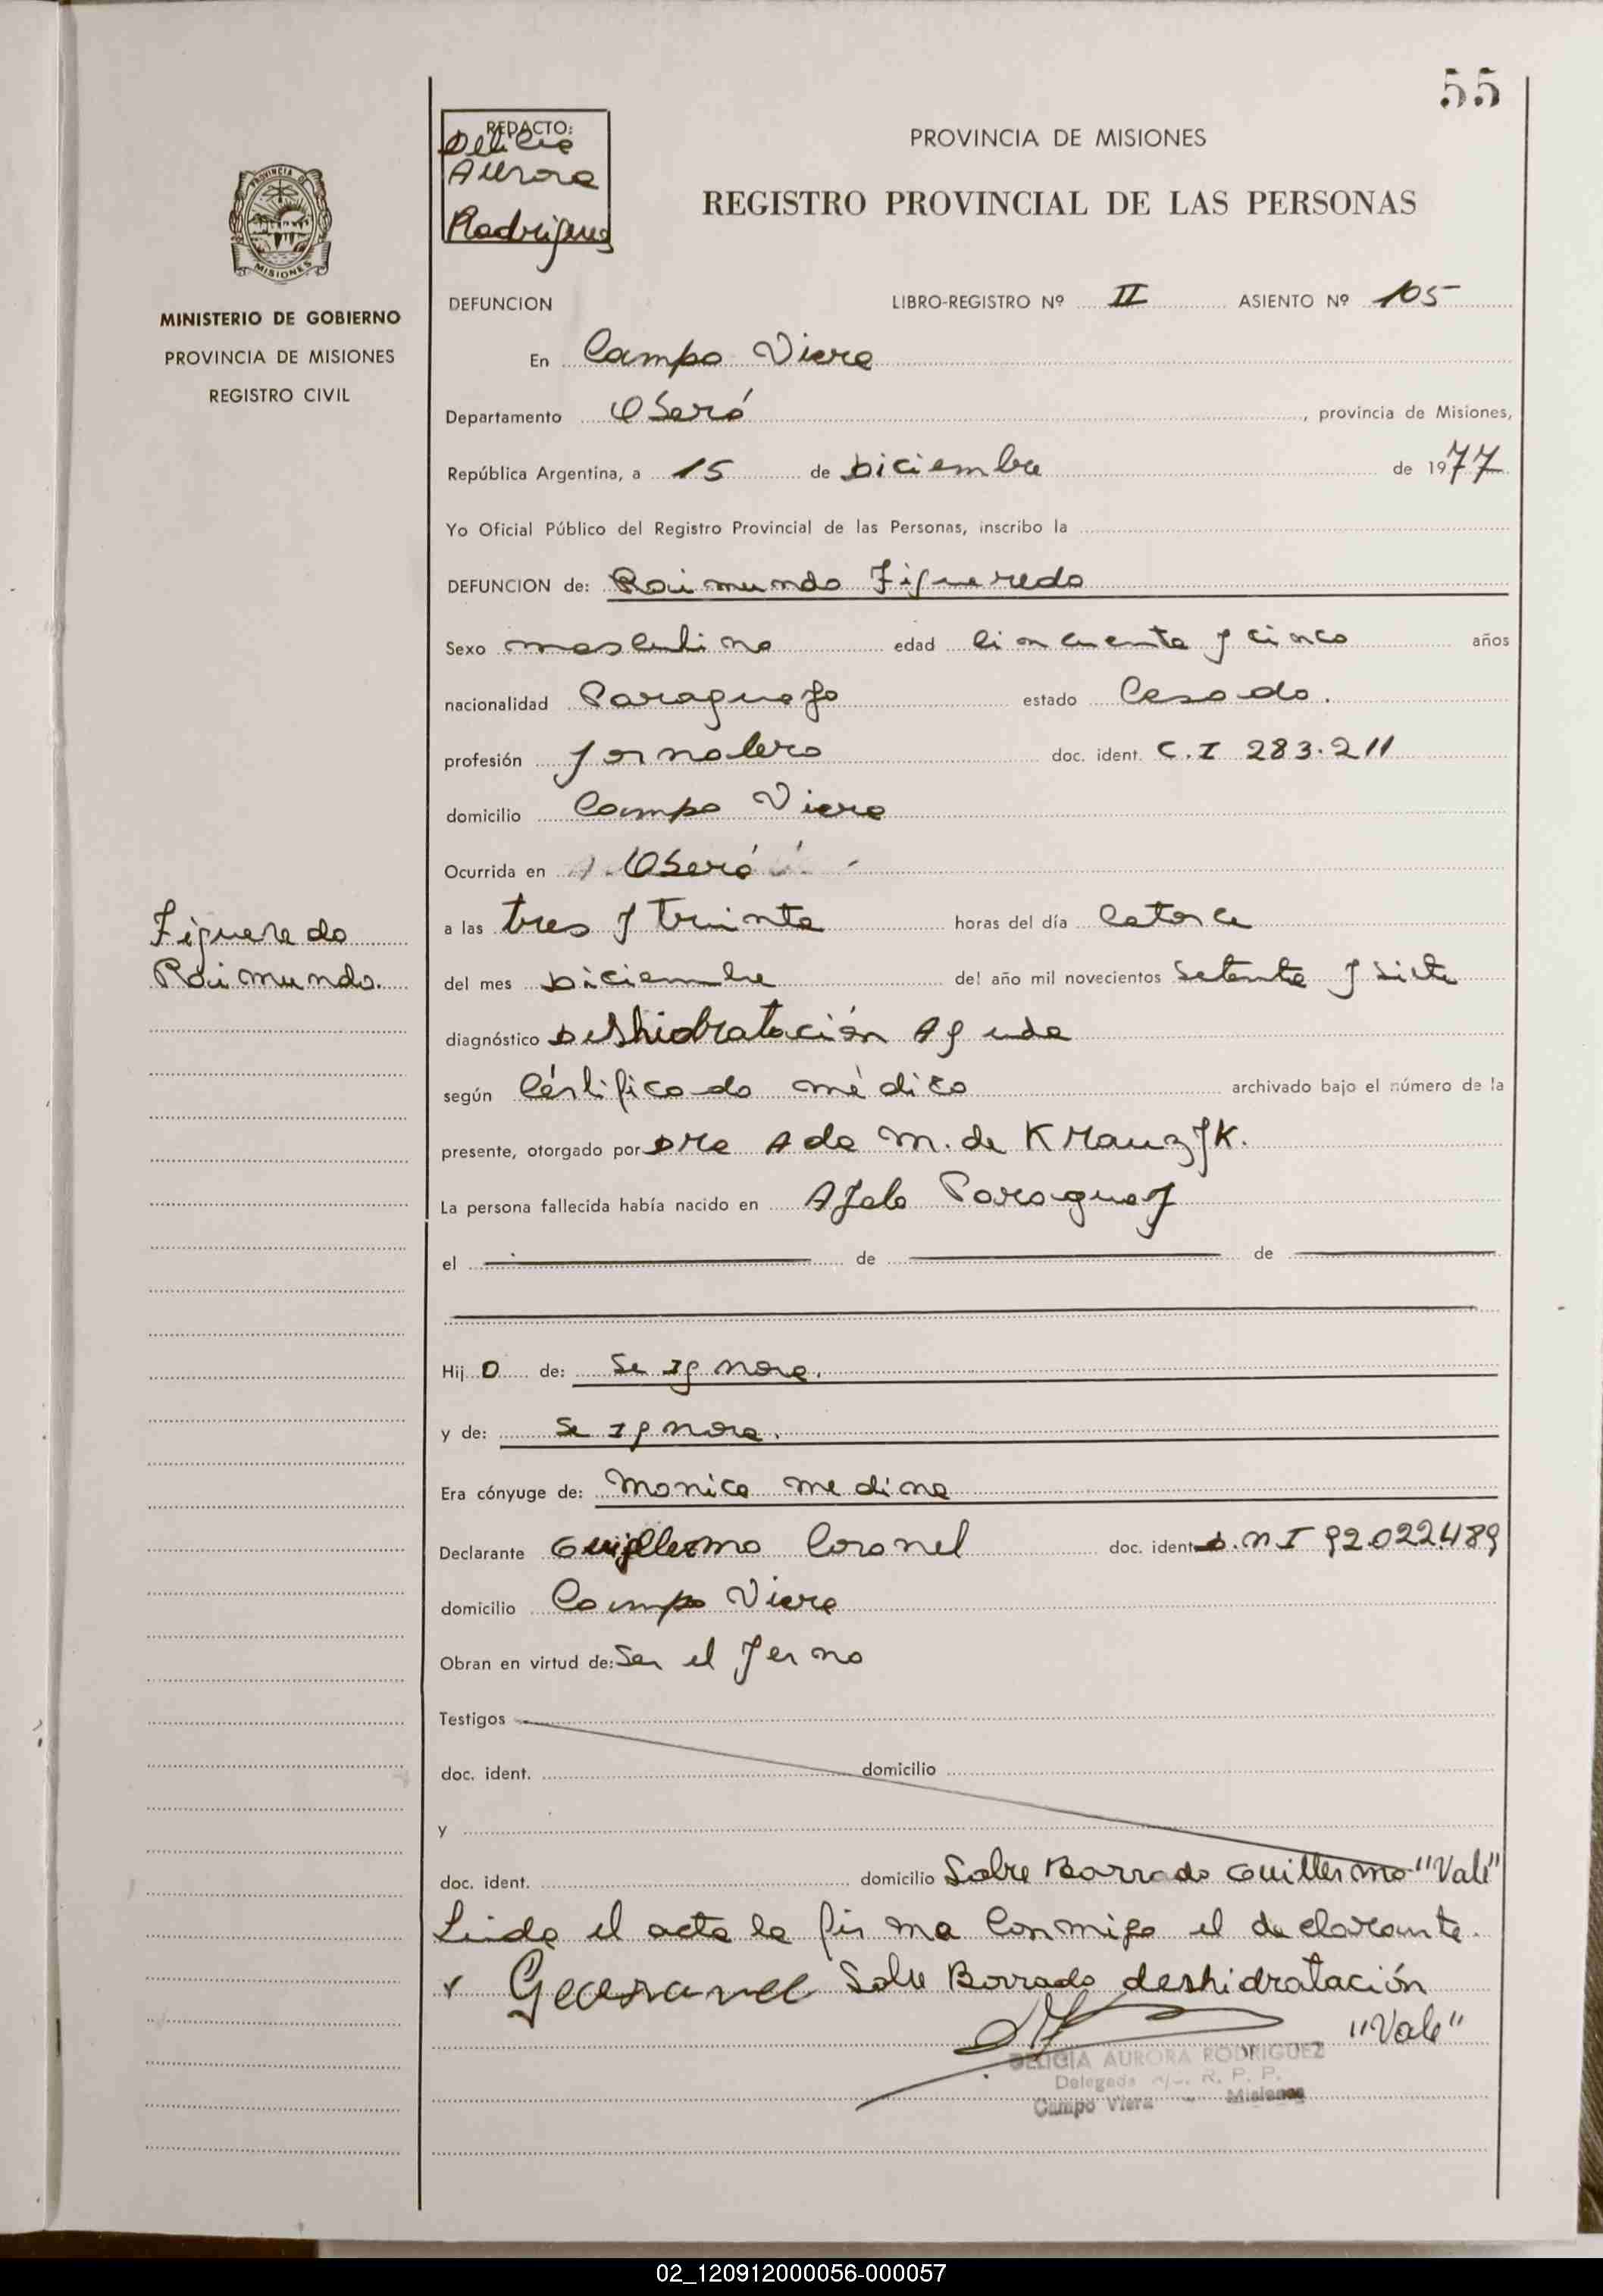 55
REDACTO:
Delicia
Aurora
Rodriguez
PROVINCIA DE MISIONES
REGISTRO PROVINCIAL DE LAS PERSONAS
PROVINCIA DE
MISIONES
MINISTERIO DE GOBIERNO
PROVINCIA DE MISIONES
REGISTRO CIVIL
DEFUNCION LIBRO-REGISTRO Nº II ASIENTO Nº 105
En Campo Viera
Departamento Oberá, provincia de Misiones,
República Argentina, a 15 de Diciembre de 1977
Yo Oficial Público del Registro Provincial de las Personas, inscribo la
DEFUNCION de: Raimundo Figueredo
Sexo masculino edad cincuenta y cinco años
nacionalidad Paraguayo estado Casado.
profesión Jornalero doc. ident. C.I 283.211
domicilio Campo Viera
Ocurrida en Oberá
Figueredo
Raimundo.
a las tres y treinta horas del día catorce
del mes Diciembre del año mil novecientos setenta y siete
diagnóstico Deshidratación Aguda
según Cértificado médico archivado bajo el número de la
presente, otorgado por Dra Ada M. de Krauzyk.
La persona fallecida había nacido en Ayala Paraguay
el de de
Hijo de: Se Ignora.
y de: Se Ignora.
Era cónyuge de: Monica Medina
Declarante Guillermo Coronel doc. ident D.N I 92.022.489
domicilio Campo Viera
Obran en virtud de: Ser el Yerno
Testigos
doc. ident. domicilio
y
doc. ident. domicilio Sobre Borrado Guillermo "Vale"
Leida el acta la firma conmigo el declarante.
Sobre Borrado deshidratación
"Vale"
DELICIA AURORA RODRIGUEZ
Delegada R. P. P.
Campo Viera - Misiones
02_120912000056-000057